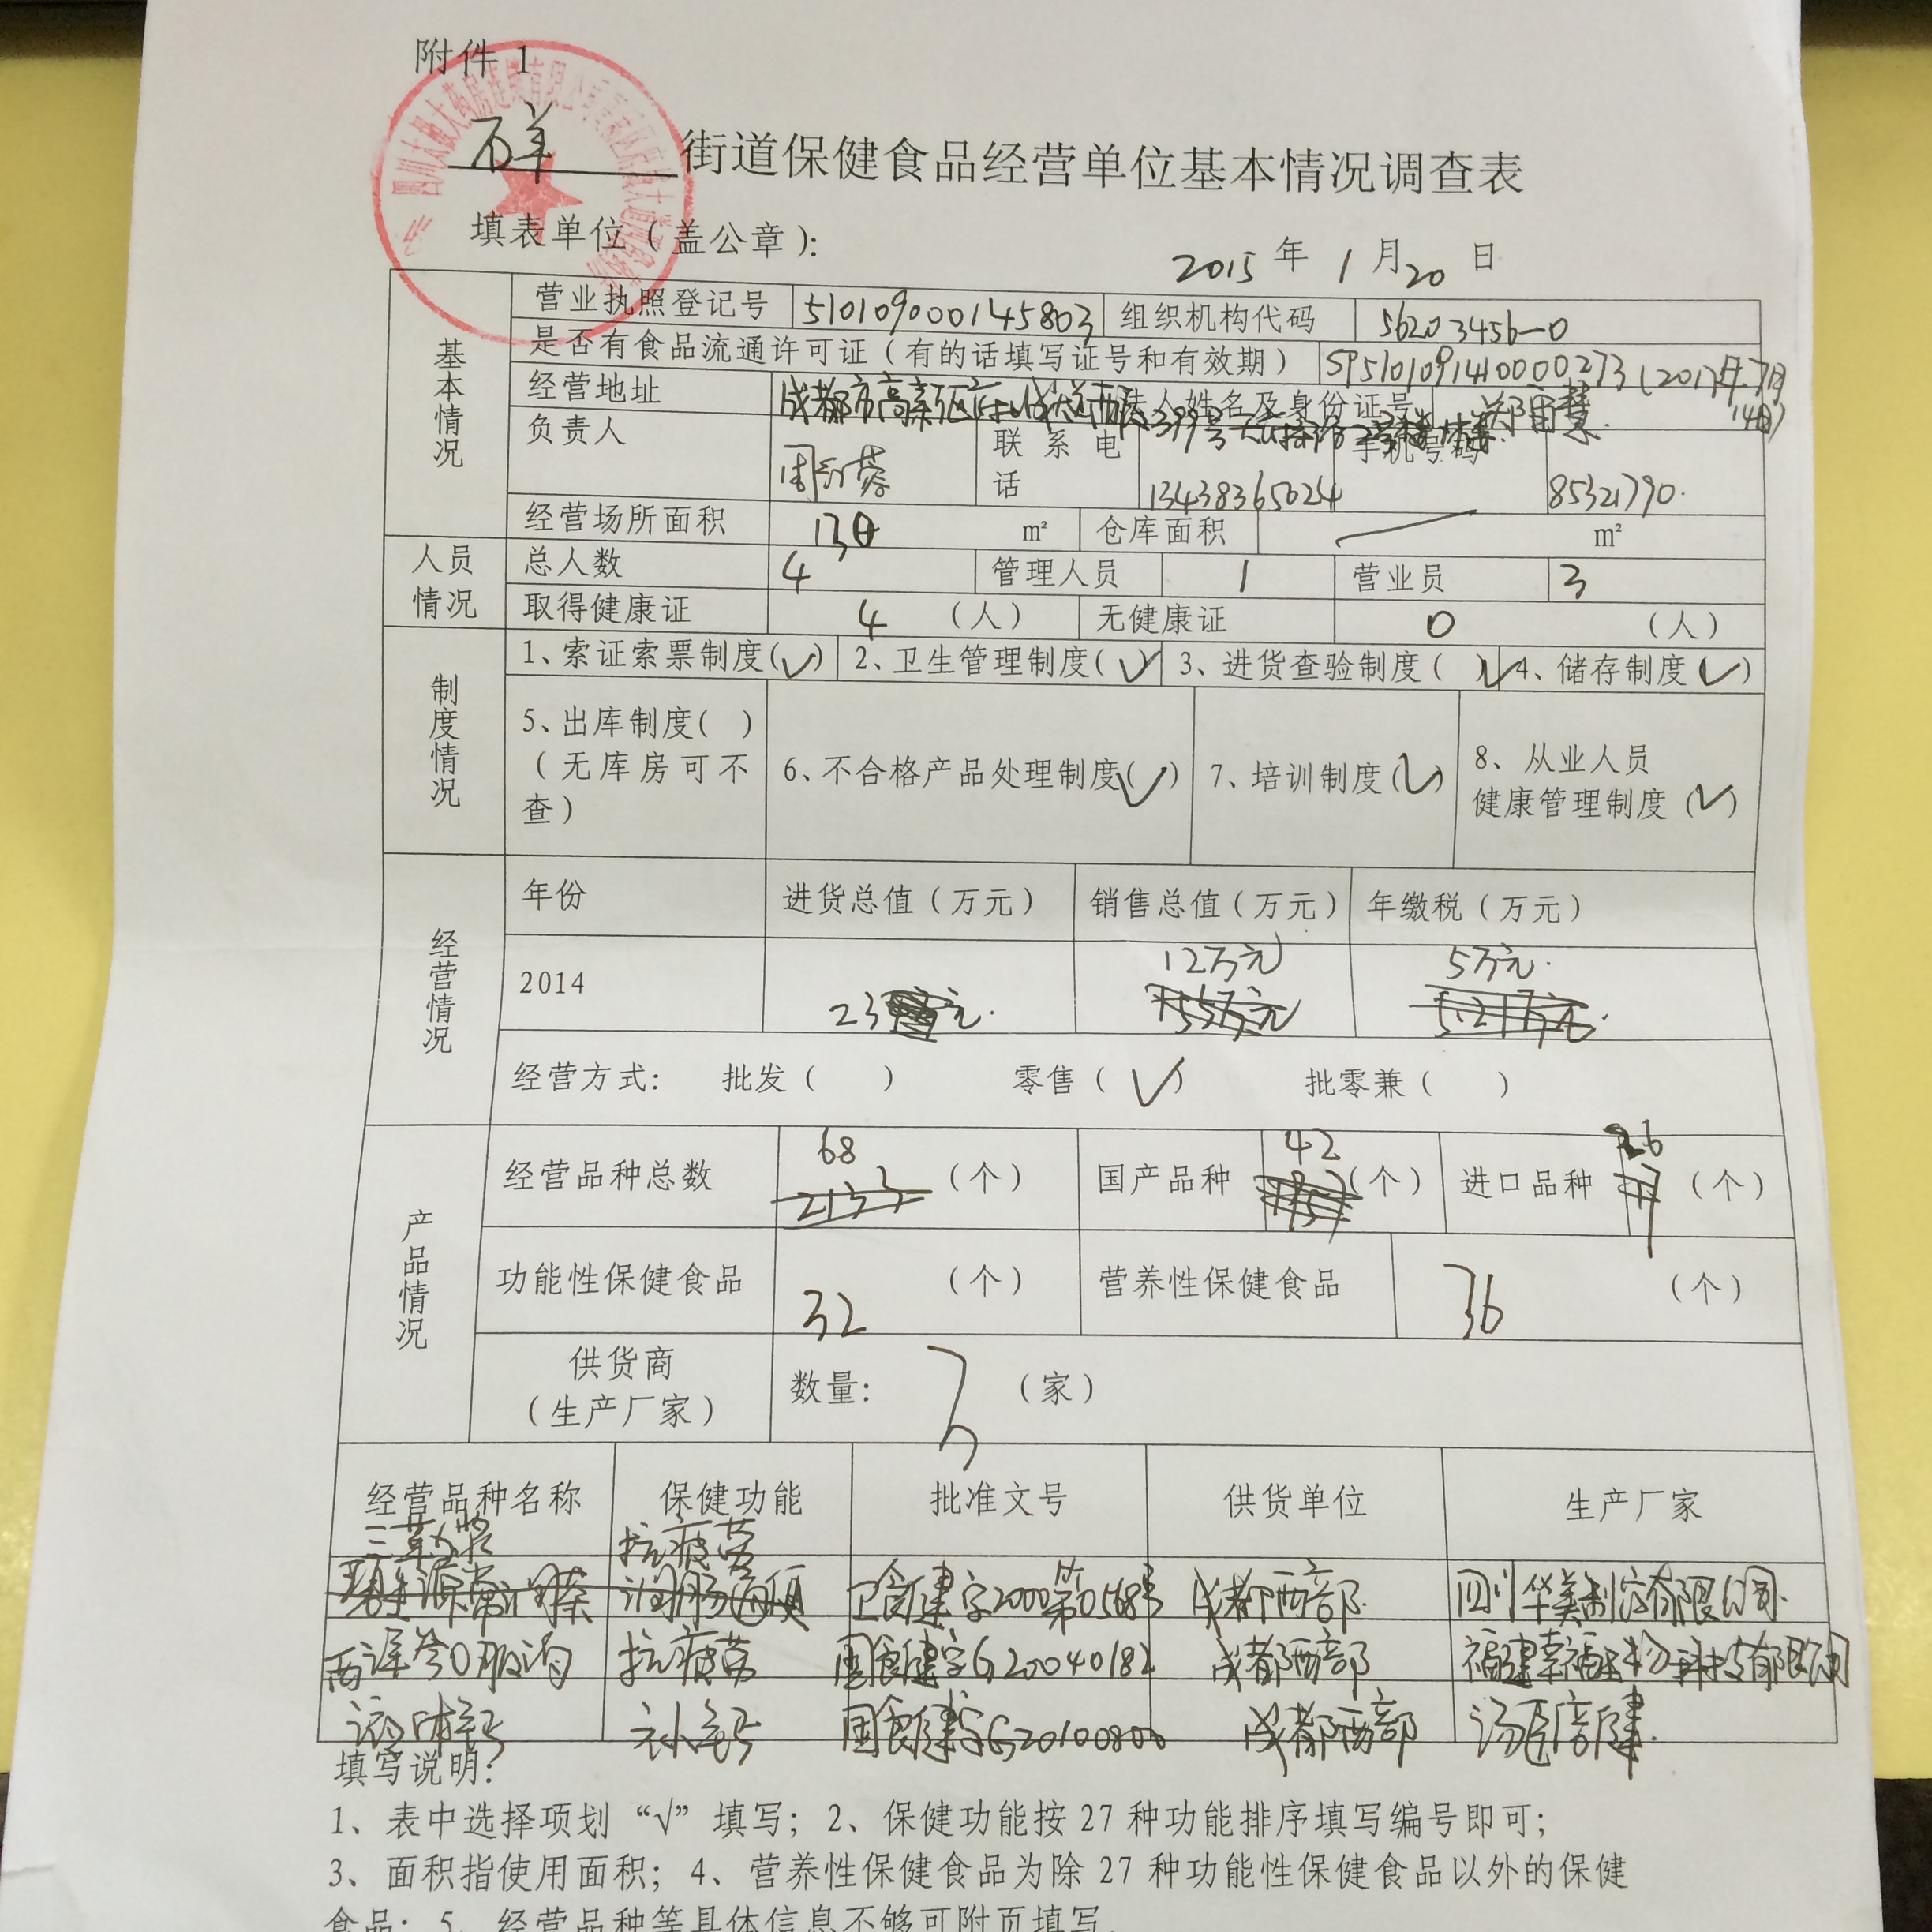 附件 1
石羊 街道保健食品经营单位基本情况调查表
填表单位(盖公章): 2015 年 1 月 20 日
基本情况
营业执照登记号 510109000145803 组织机构代码 56203456-0
是否有食品流通许可证(有的话填写证号和有效期) SP5101091410000273 (2017年7月14日)
经营地址 成都市高新区 399号 法人姓名及身份证号
负责人 联系电话 13438365624 手机号码 85321790.
经营场所面积 130 m² 仓库面积 m²
人员情况
总人数 4 管理人员 1 营业员 3
取得健康证 4 (人) 无健康证 0 (人)
制度情况
1、索证索票制度(√) 2、卫生管理制度(√) 3、进货查验制度( )√ 4、储存制度(√)
5、出库制度( )
(无库房可不查)
6、不合格产品处理制度(√) 7、培训制度(√) 8、从业人员
健康管理制度(√)
经营情况
年份 进货总值(万元) 销售总值(万元) 年缴税(万元)
12万元 5万元.
2014 23 元.
经营方式: 批发( ) 零售(√) 批零兼( )
产品情况
68 42 26
经营品种总数 (个) 国产品种 (个) 进口品种 (个)
功能性保健食品 32 (个) 营养性保健食品 36 (个)
供货商
(生产厂家) 数量: (家)
经营品种名称 保健功能 批准文号 供货单位 生产厂家
三勒浆 抗疲劳
卫食健字2000第0568号 成都西部 四川华美制药有限公司.
西洋参口服液 抗疲劳 国食健字G20040182 成都西部
液体钙 补钙 国食健字G20100800 成都西部 汤臣倍健.
填写说明:
1、表中选择项划“√”填写; 2、保健功能按 27 种功能排序填写编号即可;
3、面积指使用面积; 4、营养性保健食品为除 27 种功能性保健食品以外的保健
食品; 5、经营品种等具体信息不够可附页填写.